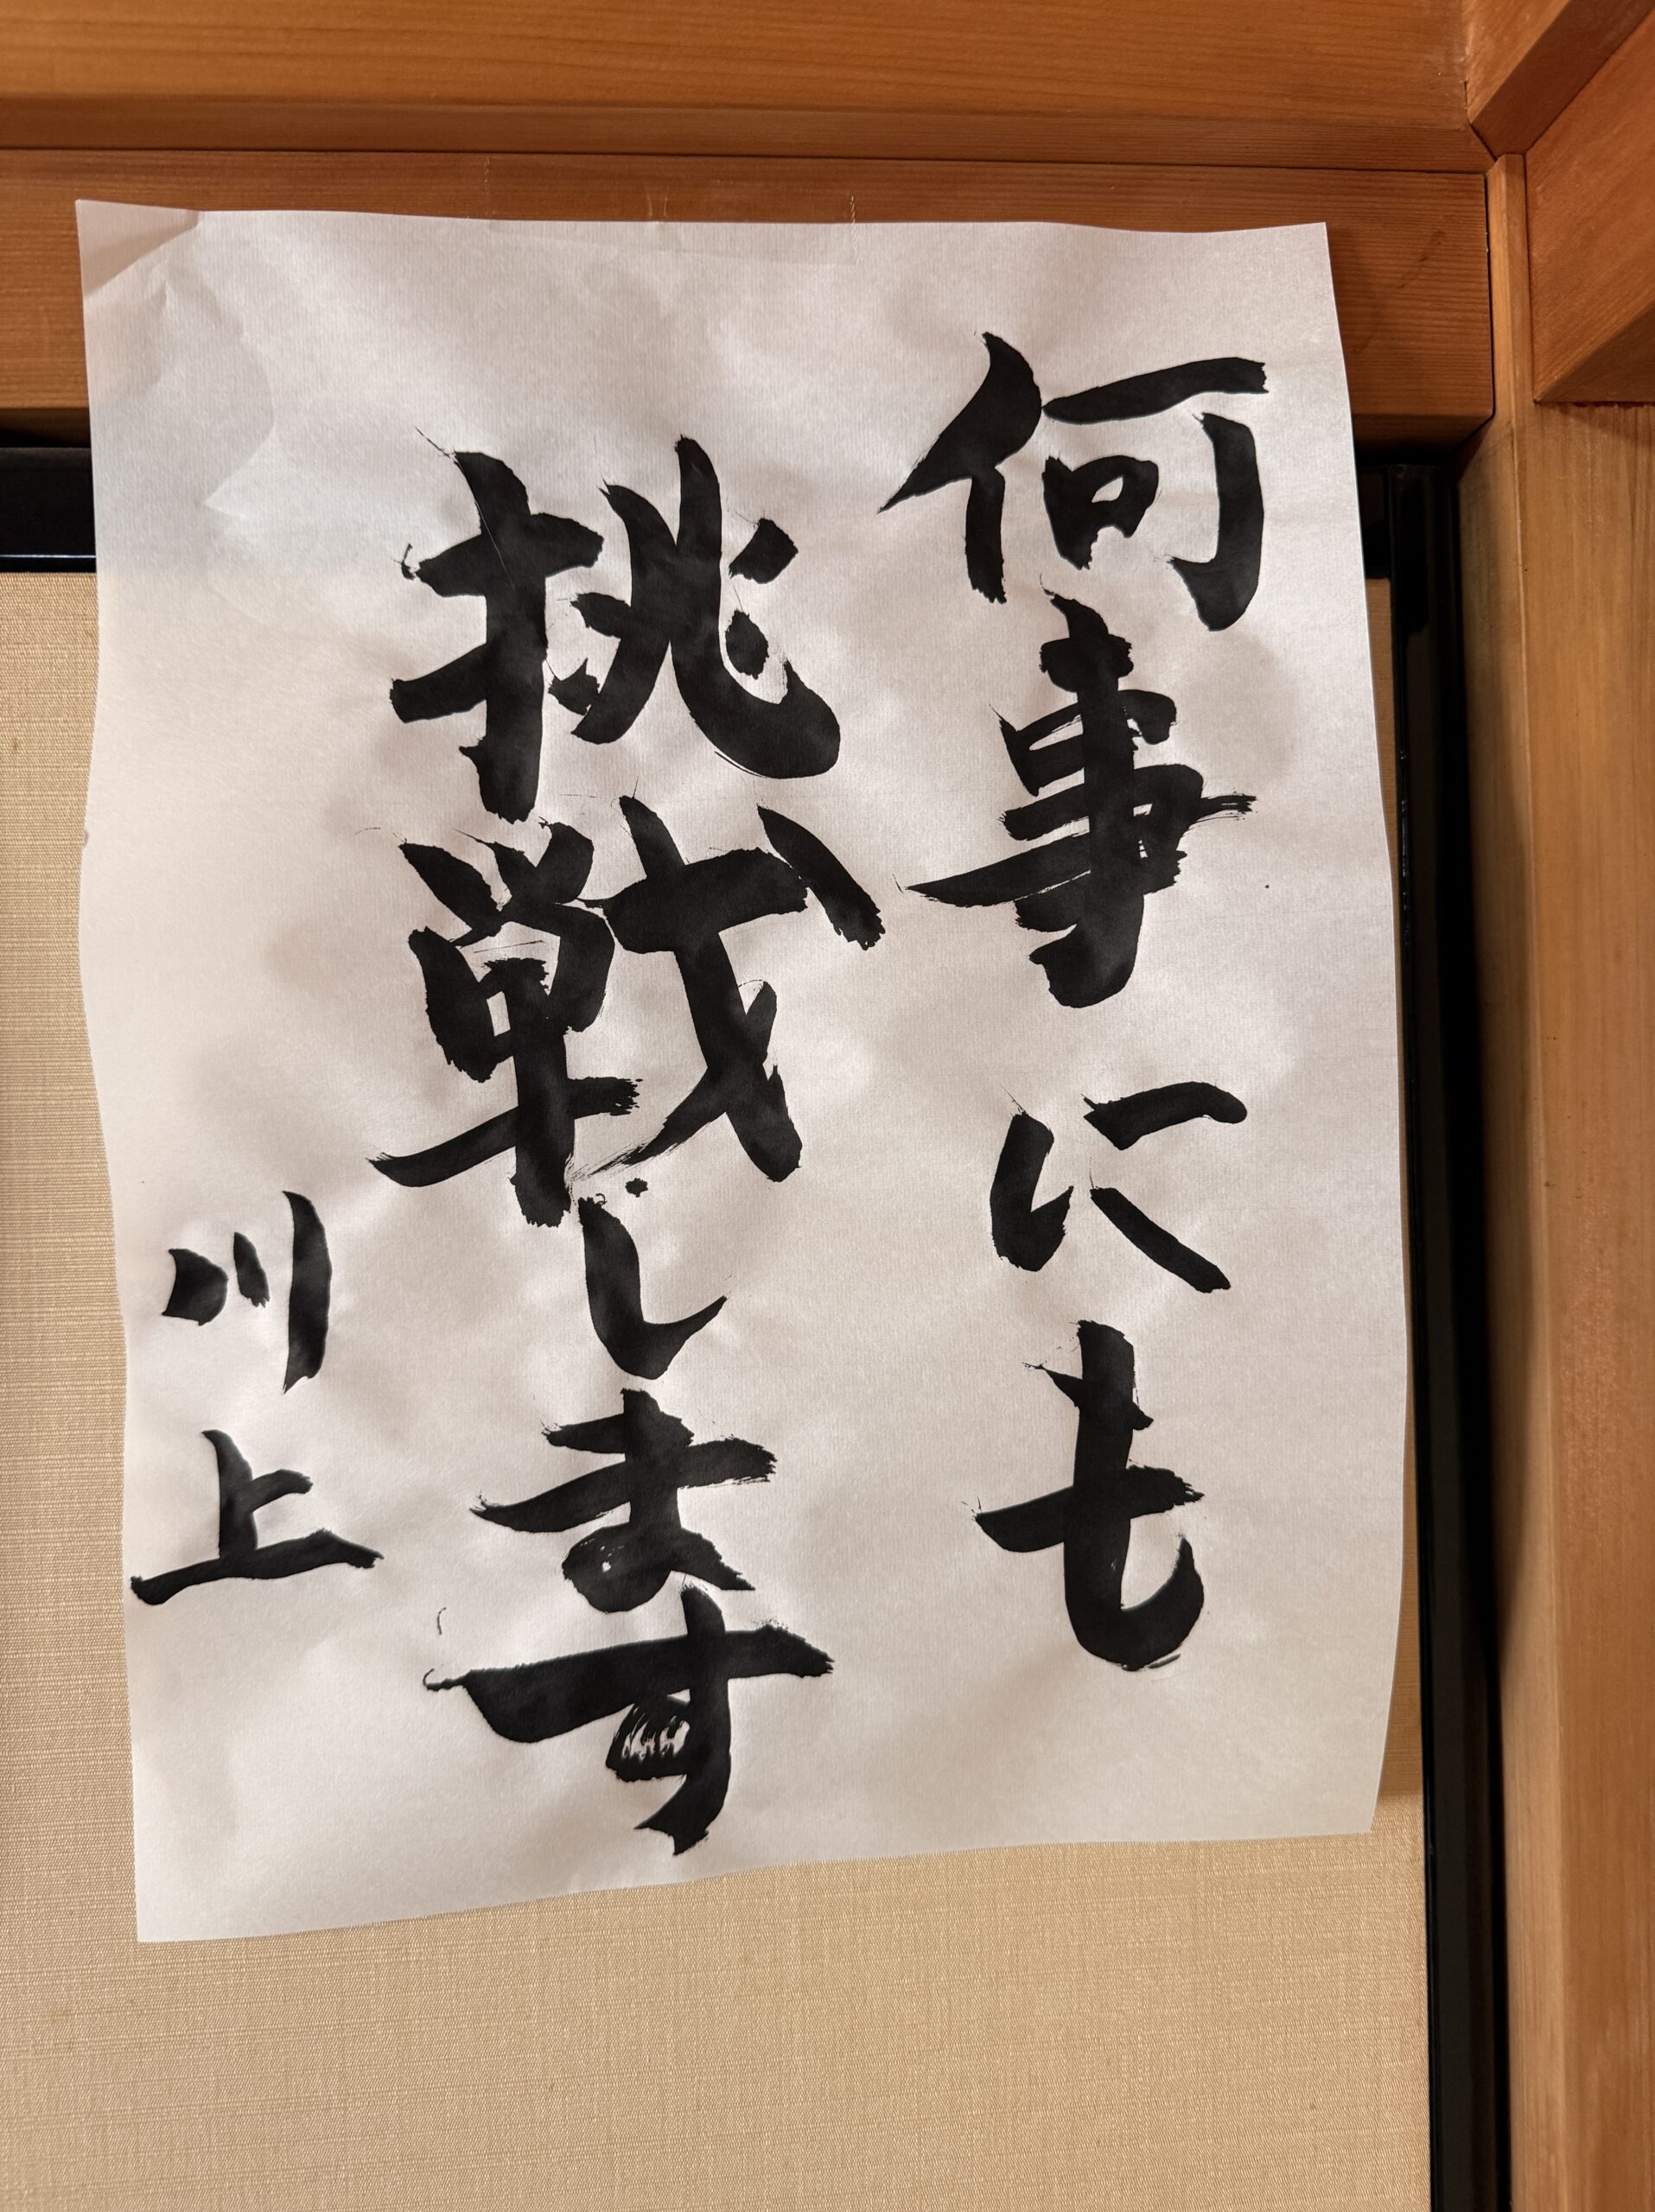 何事にも
挑戦します
川上